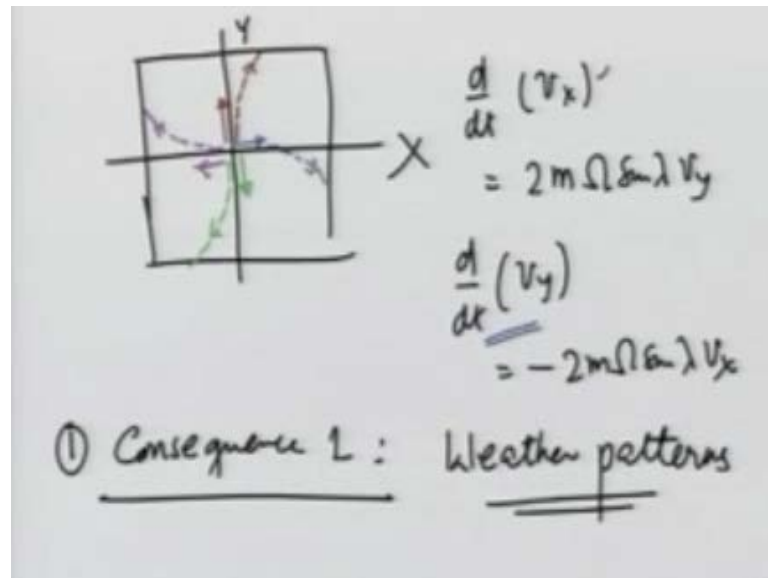 Y
X
d/dt (Vx)
= 2mΩ Sin λ Vy
d/dt (Vy)
= - 2mΩ Sin λ Vx
① Consequence 1 : Weather patterns